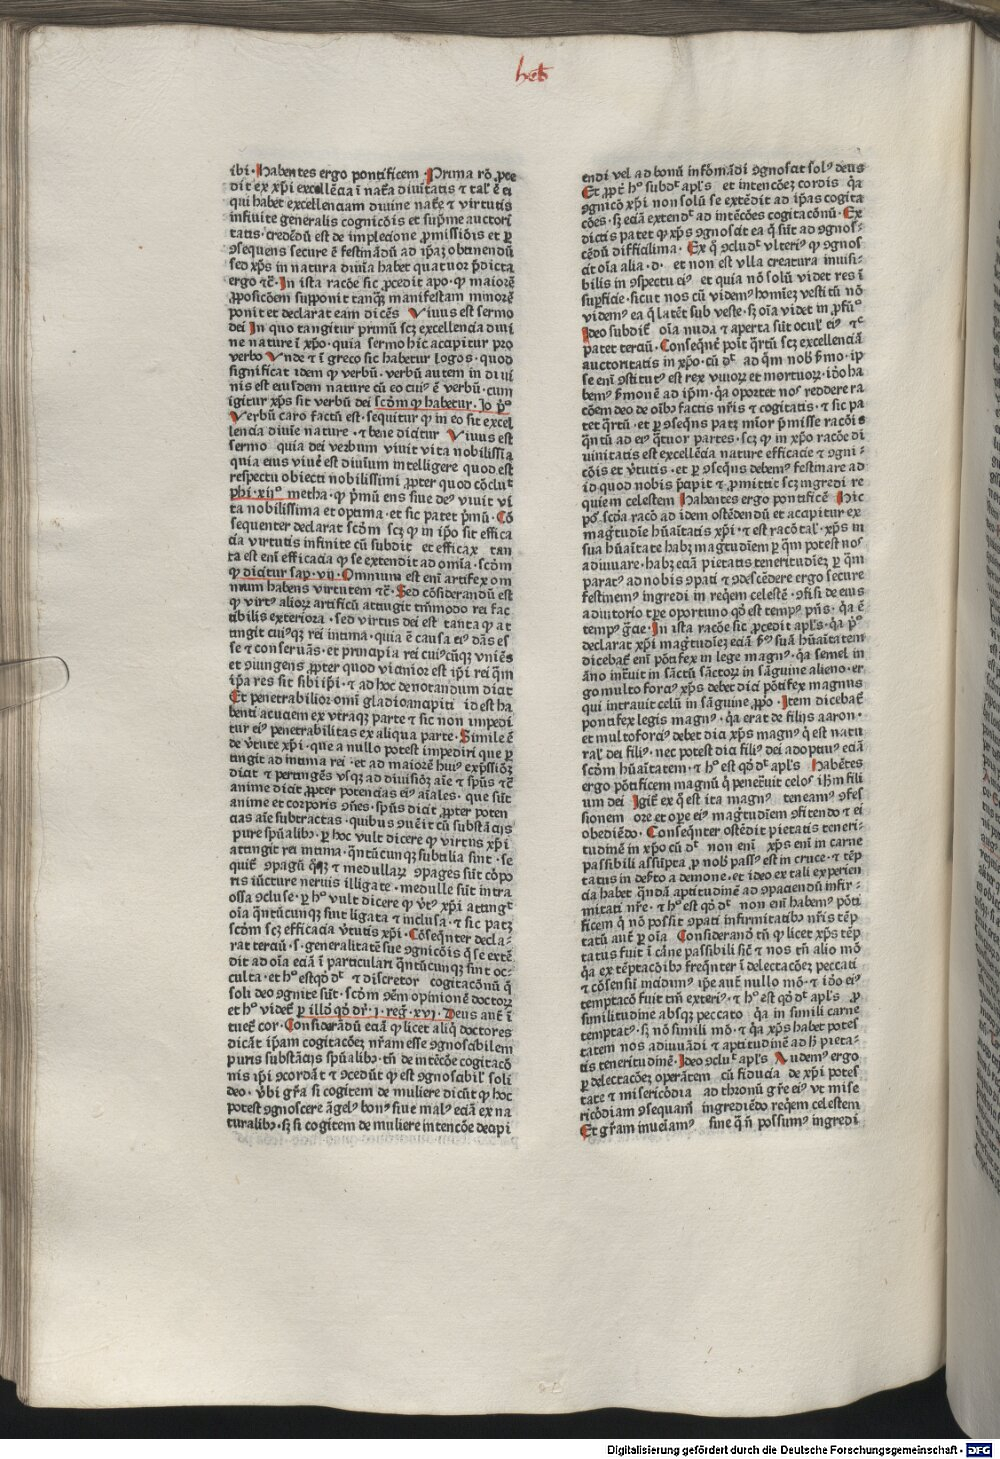 heb
ibi · Habentes ergo pontificem · Prima rõ ꝓce
dit ex xp̃i excellẽcia ĩ nat̃a diuitatis ⁊ tal' ẽ ⁊i
qui habet excellenciam diuine nat̃e ⁊ virtutis
infinite generalis cognicõis et sup̃me auctori
tatis · credẽdũ est de implecione ꝓmissiõis et ꝑ
ꝯsequens secure ẽ festinãdũ ad ip̃aʒ obtinendũ
sed xp̃s in natura diuĩa habet quatuor p̃dicta
ergo ⁊c̃ · In ista racõe sic ꝓcedit apo · qꝫ maiorẽ
ꝓposicõem supponit tanqꝫ manifestam minorẽ
ponit et declarat eam dicẽs Viuus est sermo
dei In quo tangitur primũ scʒ excellencia diui
ne nature ĩ xp̃o · quia sermo hic accipitur pro
verbo Vnde ⁊ ĩ greco sic habetur logos · quod
significat idem qꝫ verbũ · verbũ autem in diui
nis est eiusdem nature cũ eo cuiꝰ ẽ verbũ · cum
igitur xp̃s sit verbũ dei scðm qꝫ habetur · Jo p̃º
Verbũ caro factũ est · sequitur qꝫ in eo sit excel
lencia diuĩe nature · ⁊ bene dicitur Viuus est
sermo quia dei verbum viuit vita nobilissĩa
quia eius viuẽ est diuiũm intelligere quod est
respectu obiecti nobilissimi ꝓpter quod cõclut̃
phi · xijº metha · qꝫ p̃mũ ens siue deꝰ viuit vi
ta nobilissima et optima · et sic patet p̃mũ · Cõ
sequenter declarat scðm scʒ qꝫ in ip̃o sit effica
cia virtutis infinite cũ subdit et efficax tan
ta est enĩ efficacia qꝫ se extendit ad omĩa · scðm
qꝫ dicitur sap · vij · Omnium est enĩ artifex om
nium habens virtutem ⁊c̃ · Sed cõsiderandũ est
qꝫ virtꝰ alioꝝ artificũ attingit tm̃modo rei fac
tibilis exteriora · sed virtus dei est tanta qꝫ at
tingit cuiꝰqꝫ rei intima · quia ẽ causa eiꝰ dãs es
se ⁊ conseruãs · et principia rei cuiꝰcũqꝫ vniẽs
et ꝯiungens ꝓpter quod vicinior est ip̃i rei q̃m
ip̃a res sit sibi ip̃i · ⁊ ad hoc denotandum dicit
Et penetrabilior omĩ gladio ancipiti id est ha
benti acuciem ex vtraqꝫ parte ⁊ sic non impedi
tur eiꝰ penetrabilitas ex aliqua parte · Simile ẽ
de v̓tute xp̃i · que a nullo potest impediri que ꝑ
tingit ad intima rei · et ad maiorẽ huiꝰ exp̃ssiõʒ
dicit ⁊ pertingẽs vsqꝫ ad diuisiõʒ aĩe ⁊ sp̃us ⁊c̃
anime dicit ꝓpter potencias eiꝰ aĩales · que sũt
anime et corporis ꝯnes · sp̃us dicit ꝓpter poten
cias aĩe subtractas · quibus ꝯuẽit cũ substãcijs
pure sp̃ualibꝫ · ꝑ hoc vult dicere qꝫ virtus xp̃i
attingit rei intima · quãtũcunqꝫ subtilia sint · se
ossa ꝯcluse · ꝑ hº vult dicere qꝫ v̓tꝰ xp̃i attingᵗ
oĩa quãtũcunqꝫ sint ligata ⁊ inclusa · ⁊ sic patʒ
scðm scʒ efficacia v̓tutis xp̃i · Cõseqñter decla-
rat terciũ · s · generalitatẽ sue ꝯgnicõis q̃ se extẽ
dit ad oĩa eciã ĩ particulari quãtũcunqꝫ sint oc-
culta · et hº est qð dᵗ ⁊ discretor cogitacõnũ q̃
soli deo ꝯgnite sũt · scðm ꝯẽm opinionẽ doctoꝝ
et hº videt̃ ꝑ illð qð dr̃ · j · reg̃ · xvj · Deus aut̃ ĩ
tuet̃ cor · Considerãdũ eciã qꝫ licet aliq̃ doctores
dicãt ip̃am cogitacõeʒ nr̃am esse ꝯgnoscibilem
puris substãcijs sp̃ualibꝫ · tñ de intẽcõe cogitacõ
nis ip̃i ꝯcordãt ⁊ ꝯcedũt qꝫ est ꝯgnoscibil' soli
deo · v̓bi gr̃a si cogitem de muliere dicũt qꝫ hoc
potest ꝯgnoscere ãgelꝰ bonꝰ siue malꝰ eciã ex na
turalibꝫ · sʒ si cogitem de muliere intencõe decipi
endi vel ad bonũ infõrmãdi ꝯgnoscit solꝰ deus
Et ꝓpt̃ hº subdᵗ apl's et intencõeʒ cordis q̃a
ꝯgnicõ xp̃i non solũ se extẽdit ad ip̃as cogita
cões · sʒ eciã extendᵗ ad intẽcões cogitacõnũ · Ex
dictis patet qꝫ xp̃s ꝯgnoscit ea q̃ sũt ad ꝯgnos-
cẽdũ difficilima · Ex q̃ ꝯcludᵗ vlteriꝰ qꝫ ꝯgnos
cit oĩa alia · d · et non est vlla creatura inuisi-
bilis in ꝯspectu eiꝰ et quia nõ solũ videt res ĩ
sup̃ficie · sicut nos cũ videmꝰ homĩeʒ vestitũ nõ
videmꝰ ea q̃ latẽt sub veste · sʒ oĩa videt in ꝓfũº
Ideo subdit̃ oĩa nuda ⁊ aperta sũt oculꝭ eiꝰ ⁊ᶜ
patet terciũ · Conseqñt̃ poĩt q̃rtũ scʒ excellenciã
auctoritatis in xp̃o · cũ dᵗ ad q̃m nob̃ p̃mo · ip
se enĩ ꝯstitutꝰ est rex viuoꝝ et mortuoꝝ · iðo ha
bemꝰ p̃monẽ ad ip̃m · q̃a oportet nos reddere ra
cõem deo de oĩbꝫ factis nr̃is ⁊ cogitatis · ⁊ sic pa
tet q̃rtũ · et ꝑ ꝯseqñs patʒ mĩor p̃misse racõis
q̃ntũ ad eiꝰ q̃tuor partes · scʒ qꝫ in xp̃o racõe di
uinitatis est excellẽcia nature efficacie ⁊ ꝯgni-
cõis et v̓tutis · et ꝑ ꝯseqñs debemꝰ festinare ad
id quod nobis p̃cipit ⁊ ꝓmittit scʒ ingredi re
quiem celestem Habentes ergo pontificẽ Hic
põᵗ scða racõ ad idem ostẽdendũ et accipitur ex
mag̃tudĩe hũaĩtatis xp̃i · ⁊ est racõ tal' · xp̃s in
sua hũaĩtate habʒ mag̃tudĩem ꝑ q̃m potest nos
adiuuare · habʒ eciã pietatis teneritudĩeʒ ꝑ q̃m
paratꝰ ad nobis ꝯpati ⁊ ꝯdescẽdere ergo secure
festinemꝰ ingredi in req̃em celestẽ · ꝯfisi de eius
adiutorio tꝑe oportuno qð est tempꝰ pñs · q̃a ẽ
tempꝰ gr̃cie · In ista racõe sic ꝓcedit apl's · q̃a pº
declarat xp̃i mag̃tudĩeʒ eciã scðm suã hũaĩtatem
dicebat̃ enĩ põtifex in lege magnꝰ · q̃a semel in
ãno intrãuit in sãctũ sãctoꝝ in sãguine alieno · er
go multo forciꝰ xp̃s debet dici põtifex magnus
qui intrauit celũ in sãguine ꝓpo · Item dicebat̃
pontifex legis magnꝰ · q̃a erat de filijs aaron ·
et multo forciꝰ debet dici xp̃s magnꝰ q̃ est natu
ral' dei filiꝰ · nec potest dici filiꝰ dei adoptiuꝰ eciã
scðm hũaĩtatem · ⁊ hº est qð dᵗ apl's Habẽtes
ergo põtificem magnũ q̃ penetrãuit celos ih̃m fili
um dei Igit̃ ex q̃ est ita magnꝰ teneamꝰ ꝯfes
sionem ore et oꝑe eiꝰ mag̃tudĩem ꝯfitendo ⁊ ei
obediẽdo · Conseqñter ostẽdit pietatis teneri-
tudinẽ in xp̃o cũ dᵗ non enĩ xp̃s enĩ in carne
passibili assũpta ꝓ nob̃ passꝰ est in cruce · ⁊ tẽp
tatus in deserto a demone · et ideo ex tali experien
cia habet quãdã aptitudinẽ ad ꝯpaciendũ infir-
mitati nr̃e · ⁊ hº est qð dᵗ non enĩ habemꝰ põti
ficem q̃ nõ possit ꝯpati infirmitatibꝫ nr̃is tẽp
tatũ aut̃ ꝑ oĩa Considerandũ tñ qꝫ licet xp̃s tẽp
tatus fuit ĩ carne passibili sic̃ ⁊ nos tñ alio mõ
q̃a ex tẽptacõibꝫ freqñter ĩ delectacõeʒ peccati
⁊ cõsensũ incidimꝰ ip̃e aut̃ nullo mõ · ⁊ iðo eiꝰ
temptacõ fuit tm̃ exteriꝰ · ⁊ hº est qð dᵗ apl's ꝓ
similitudine absqꝫ peccato q̃a in simili carne
temptatꝰ · sʒ nõ simili mõ · ⁊ q̃a xp̃s habet potes
tatem nos adiuuãdi ⁊ aptitudinẽ ad h̃ pieta-
tis teneritudinẽ · Ideo ꝯcludᵗ apl's Audemꝰ ergo
ꝑ delectacõeʒ operãtem cũ fiducia de xp̃i potes
tate ⁊ misericõdia ad thronũ gr̃e eiꝰ vt mise
ricõdiam ꝯsequamꝰ ingrediẽdo req̃em celestem
Et gr̃am inueĩamꝰ sine q̃ ñ possumꝰ ingredi
Digitalisierung gefördert durch die Deutsche Forschungsgemeinschaft · DFG